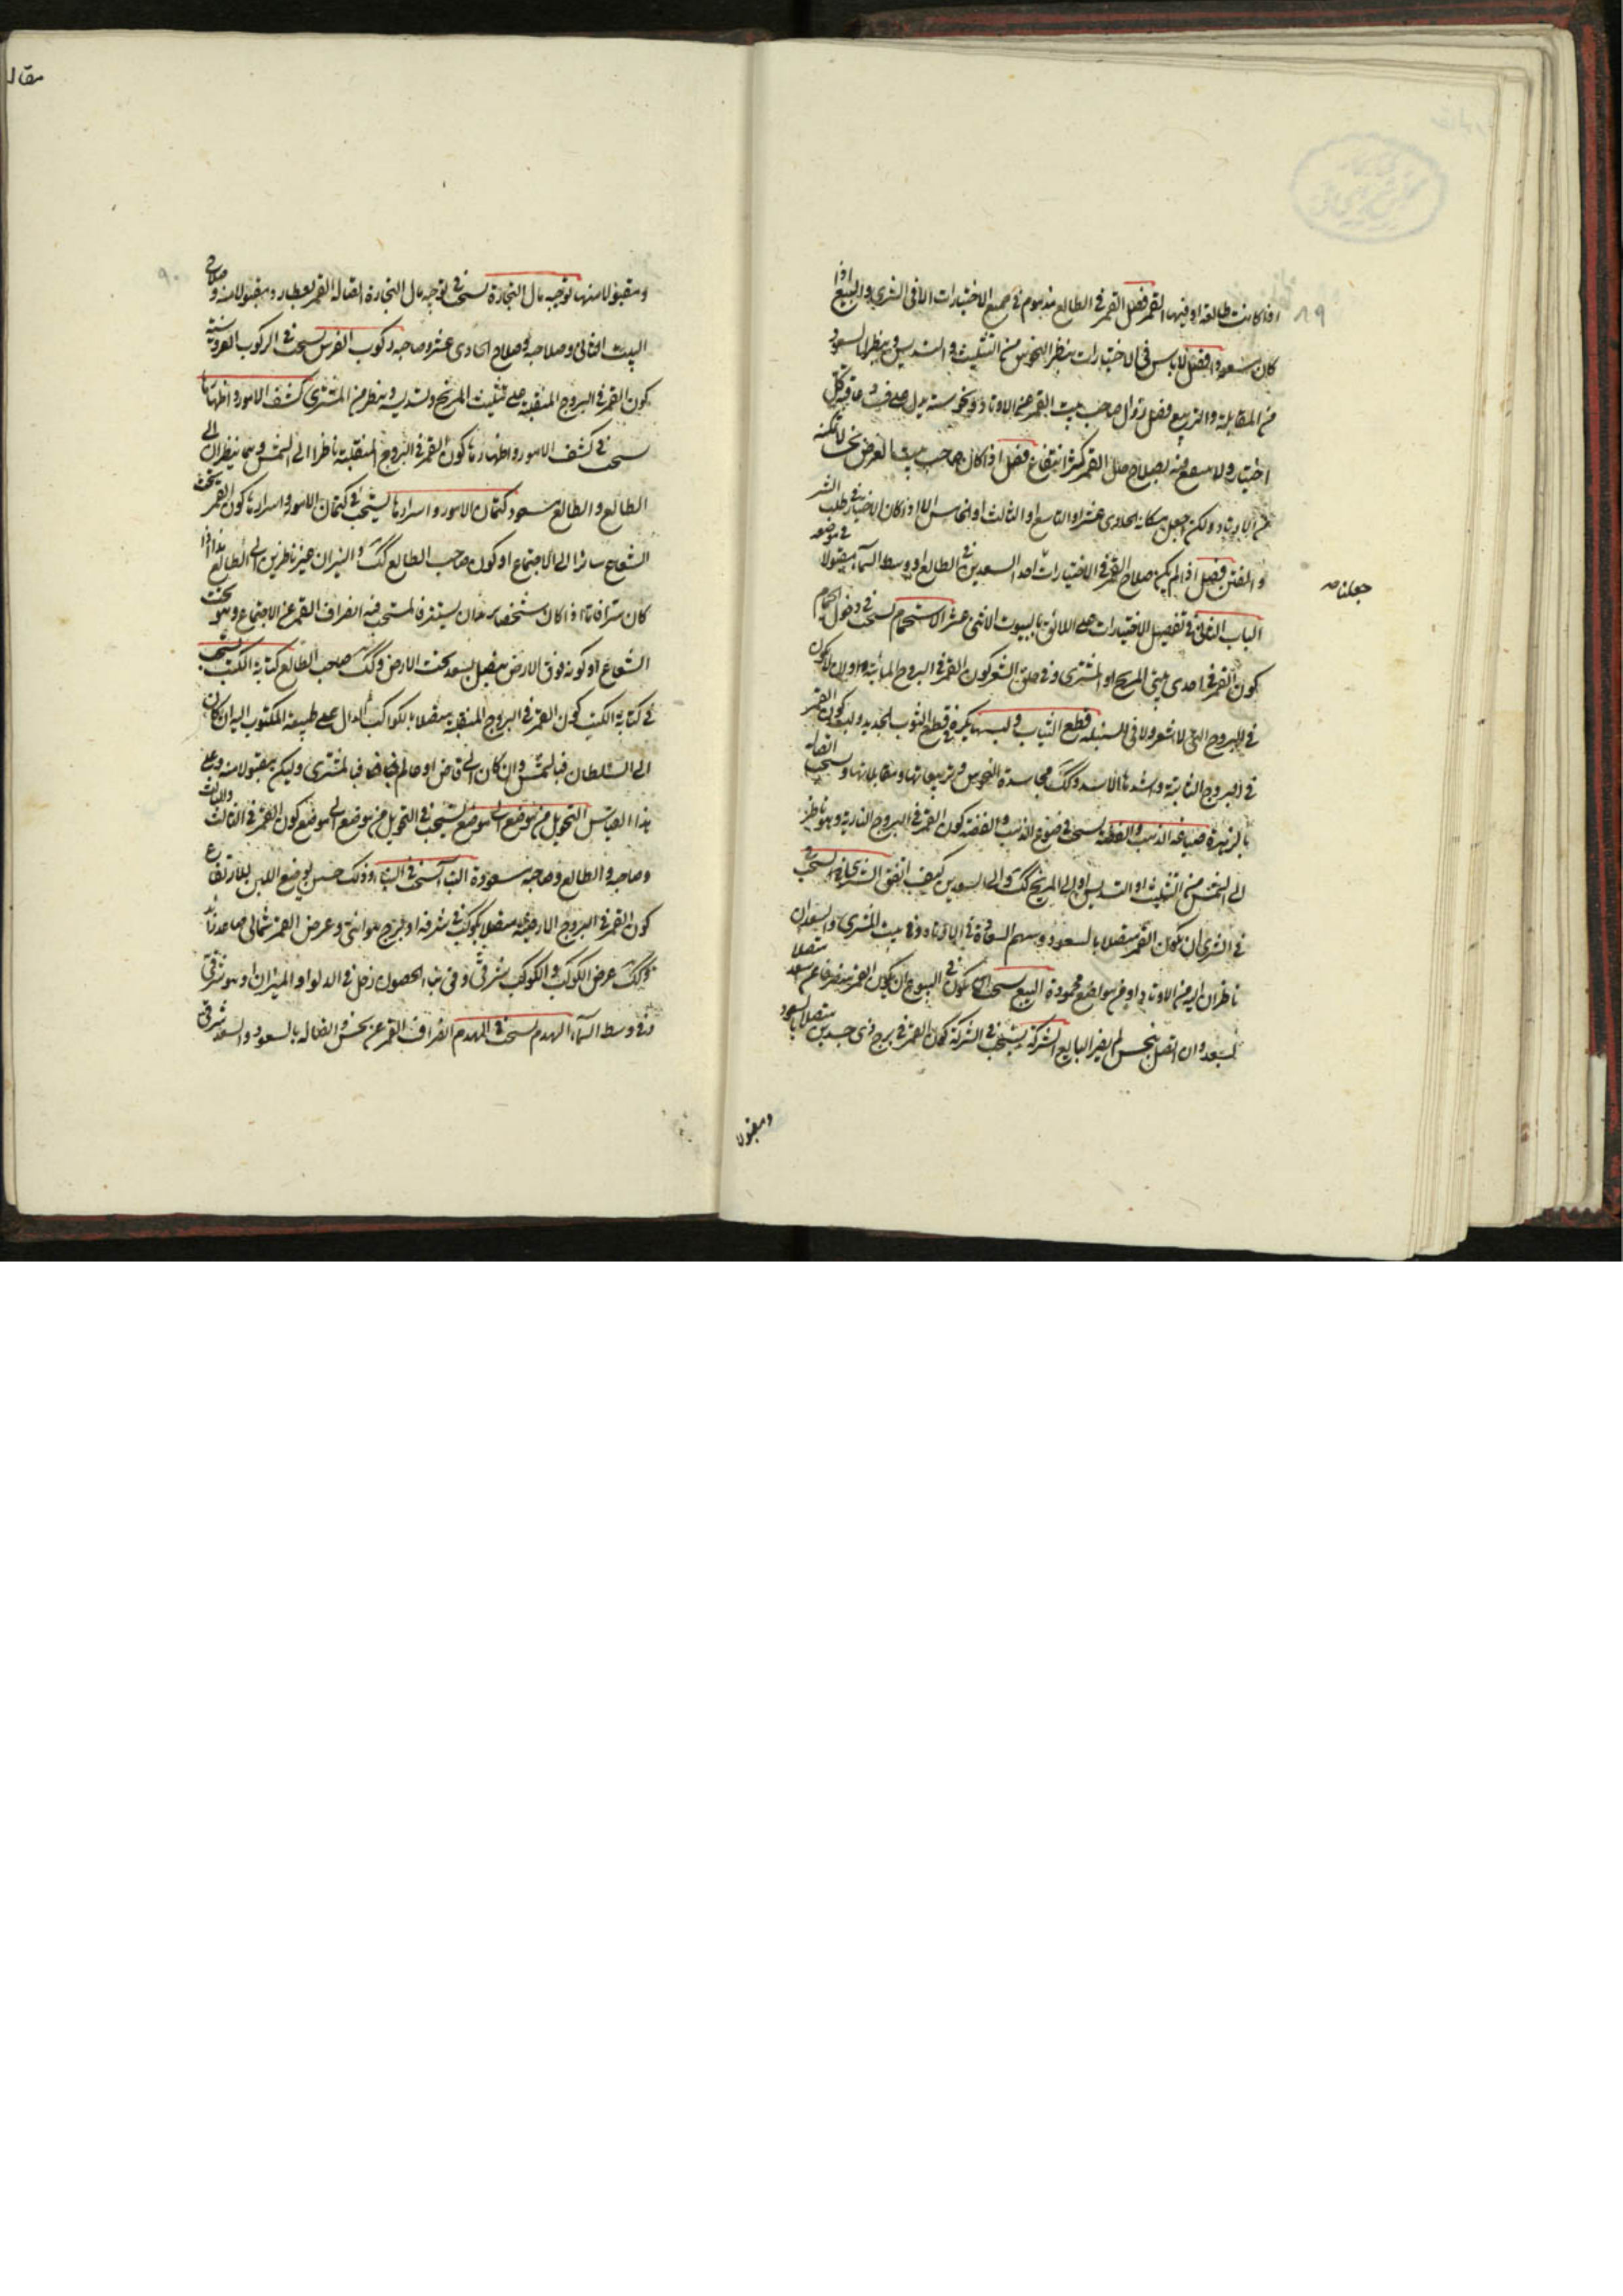 اذا كانت طالعة او فيها القمر فصل القمر في الطالع مذموم في جميع الاختيارات الا في الشرى والبيع اذا
كان مسعودا فصل لا باس في الاختيارات بنظر النحوس من التثليث و التسديس و بنظر السعود
من المقابلة والتربيع فصل زوال صاحب بيت القمر عن الاوتاد و نحوسته يدل على فساد عاقبة كل
اختيار ولا ينتفع منه بصلاح حال القمر كثير انتفاع فصل اذا كان صاحب بيت الغرض نحسا لا تمكنه
من الاوتاد ولكن اجعل مكانه الحادي عشر او التاسع او الثالث او الخامس اللا اذا كان الاختيار في طلب الشر
و الفتن فصل اذا لم يكن صلاح القمر في الاختيارات احد السعدين في الطالع او وسط السماء مقبولا في موضعه
جعلنا
الباب الثاني في تفصيل الاختيارات على اللائق بالبيوت الاثنى عشر الاستحمام يستحب في دخول الحمام
كون القمر في احدى بيتي المريخ او المشترى وفي حلق الشعر كون القمر في البروج المائية و اولا ان لا يكون
في البروج التي لا شعر ولا في السنبلة قطع الثياب و لبسها يكره في قطع الثوب الجديد و لبسه كون القمر
في البروج الثابتة و اشدها الاسد وكك مجاسدة النحوس و تربيعاتها و مقابلاتها و يستحب اتصاله
بالزهرة صياغة الذهب و الفضة يستحب في صوغ الذهب و الفضة كون القمر في البروج النارية و هو ناظر
الى الشمس من التثليث او التسديس او الى المريخ كك و الى السعدين كيف اتفق الشرى يستحب
في الشرى ان يكون القمر متصلا بالسعود و سهم السعادة في الاوتاد و في بيت المشترى والسعدان
ناظران اليه من الاوتاد او من مواضع محمودة البيع يستحب ان يكون في البيوع ان يكون القمر منصرفا عن سعد متصلا
بسعد و ان اتصل بنحس لم يضر البايع الشركة يستحب في الشركة كون القمر في برج ذى جسدين متصلا بالسعود
ومقبولا
ومقبولا منها توجيه مال التجارة يستحب في توجيه مال التجارة اتصال القمر بعطارد و مقبولا منه و صلاح
البيت الثاني و صلاحه و صلاح الحادي عشر و صاحبه ركوب الفرس يستحب في الركوب
كون القمر في البروج المنقلبة على تثليث المريخ و تسديسه و بنظر من المشترى كشف الامور و اظهارها
يستحب في كشف الامور و اظهارها كون القمر في البروج المنقلبة ناظرا الى الشمس و هما ينظران الى
الطالع و الطالع مسعود كتمان الامور و اسرارها يستحب في كتمان الامور و اسرارها كون القمر تحت
الشعاع سائرا الى الاجتماع او كون صاحب الطالع كك و النيران غير ناظرين الى الطالع هذا اذا
كان سترا فاما اذا كان شخصا يريد ان يستتر فالمستحب فيه انصراف القمر عن الاجتماع و هو تحت
الشعاع او كونه فوق الارض متصل بسعد تحت الارض و كك صاحب الطالع كتابة الكتب يستحب
في كتابة الكتب كون القمر في البروج المنقلبة متصلا بالكواكب الدال على طبيعة المكتوب اليه ان كان
الى السلطان فبالشمس و ان كان الى قاض او عالم فبالمشترى وليكن مقبولا منه و على
هذا القياس التحويل من موضع الى موضع يستحب في التحويل من موضع الى موضع كون القمر في الثالث
وصاحبه و الطالع و صاحبه مسعودة البناء يستحب في البناء و ذلك حسن لوضع اللبن للارتفاع
كون القمر في البروج الارضية متصلا بكوكب في شرفه او برج هوائي و عرض القمر شمالي صاعد زائد
وكك عرض الكوكب و الكوكب شرقي و في بناء الحصون زحل في الدلو او الميزان او هو شرقي
في وسط السماء الهدم يستحب في الهدم انصراف القمر عن نحس و اتصاله بالسعود و السعد شرقي